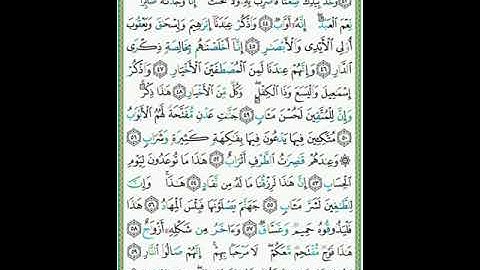 ﴿٤٣﴾ وَخُذْ بِيَدِكَ ضِغْثًا فَٱضْرِب بِّهِۦ وَلَا تَحْنَثْ ۗ إِنَّا وَجَدْنَٰهُ صَابِرًا ۚ
نِّعْمَ ٱلْعَبْدُ ۖ إِنَّهُۥٓ أَوَّابٌ ﴿٤٤﴾ وَٱذْكُرْ عِبَٰدَنَآ إِبْرَٰهِيمَ وَإِسْحَٰقَ وَيَعْقُوبَ
أُو۟لِى ٱلْأَيْدِى وَٱلْأَبْصَٰرِ ﴿٤٥﴾ إِنَّآ أَخْلَصْنَٰهُم بِخَالِصَةٍ ذِكْرَى
ٱلدَّارِ ﴿٤٦﴾ وَإِنَّهُمْ عِندَنَا لَمِنَ ٱلْمُصْطَفَيْنَ ٱلْأَخْيَارِ ﴿٤٧﴾ وَٱذْكُرْ
إِسْمَٰعِيلَ وَٱلْيَسَعَ وَذَا ٱلْكِفْلِ ۖ وَكُلٌّ مِّنَ ٱلْأَخْيَارِ ﴿٤٨﴾ هَٰذَا ذِكْرٌ ۚ
وَإِنَّ لِلْمُتَّقِينَ لَحُسْنَ مَـَٔابٍ ﴿٤٩﴾ جَنَّٰتِ عَدْنٍ مُّفَتَّحَةً لَّهُمُ ٱلْأَبْوَٰبُ
﴿٥٠﴾ مُتَّكِـِٔينَ فِيهَا يَدْعُونَ فِيهَا بِفَٰكِهَةٍ كَثِيرَةٍ وَشَرَابٍ ﴿٥١﴾
۞ وَعِندَهُمْ قَٰصِرَٰتُ ٱلطَّرْفِ أَتْرَابٌ ﴿٥٢﴾ هَٰذَا مَا تُوعَدُونَ لِيَوْمِ
ٱلْحِسَابِ ﴿٥٣﴾ إِنَّ هَٰذَا لَرِزْقُنَا مَا لَهُۥ مِن نَّفَادٍ ﴿٥٤﴾ هَٰذَا ۚ وَإِنَّ
لِلطَّٰغِينَ لَشَرَّ مَـَٔابٍ ﴿٥٥﴾ جَهَنَّمَ يَصْلَوْنَهَا فَبِئْسَ ٱلْمِهَادُ ﴿٥٦﴾ هَٰذَا
فَلْيَذُوقُوهُ حَمِيمٌ وَغَسَّاقٌ ﴿٥٧﴾ وَءَاخَرُ مِن شَكْلِهِۦٓ أَزْوَٰجٌ ﴿٥٨﴾
هَٰذَا فَوْجٌ مُّقْتَحِمٌ مَّعَكُمْ ۖ لَا مَرْحَبًۢا بِهِمْ ۚ إِنَّهُمْ صَالُوا۟ ٱلنَّارِ ﴿٥٩﴾